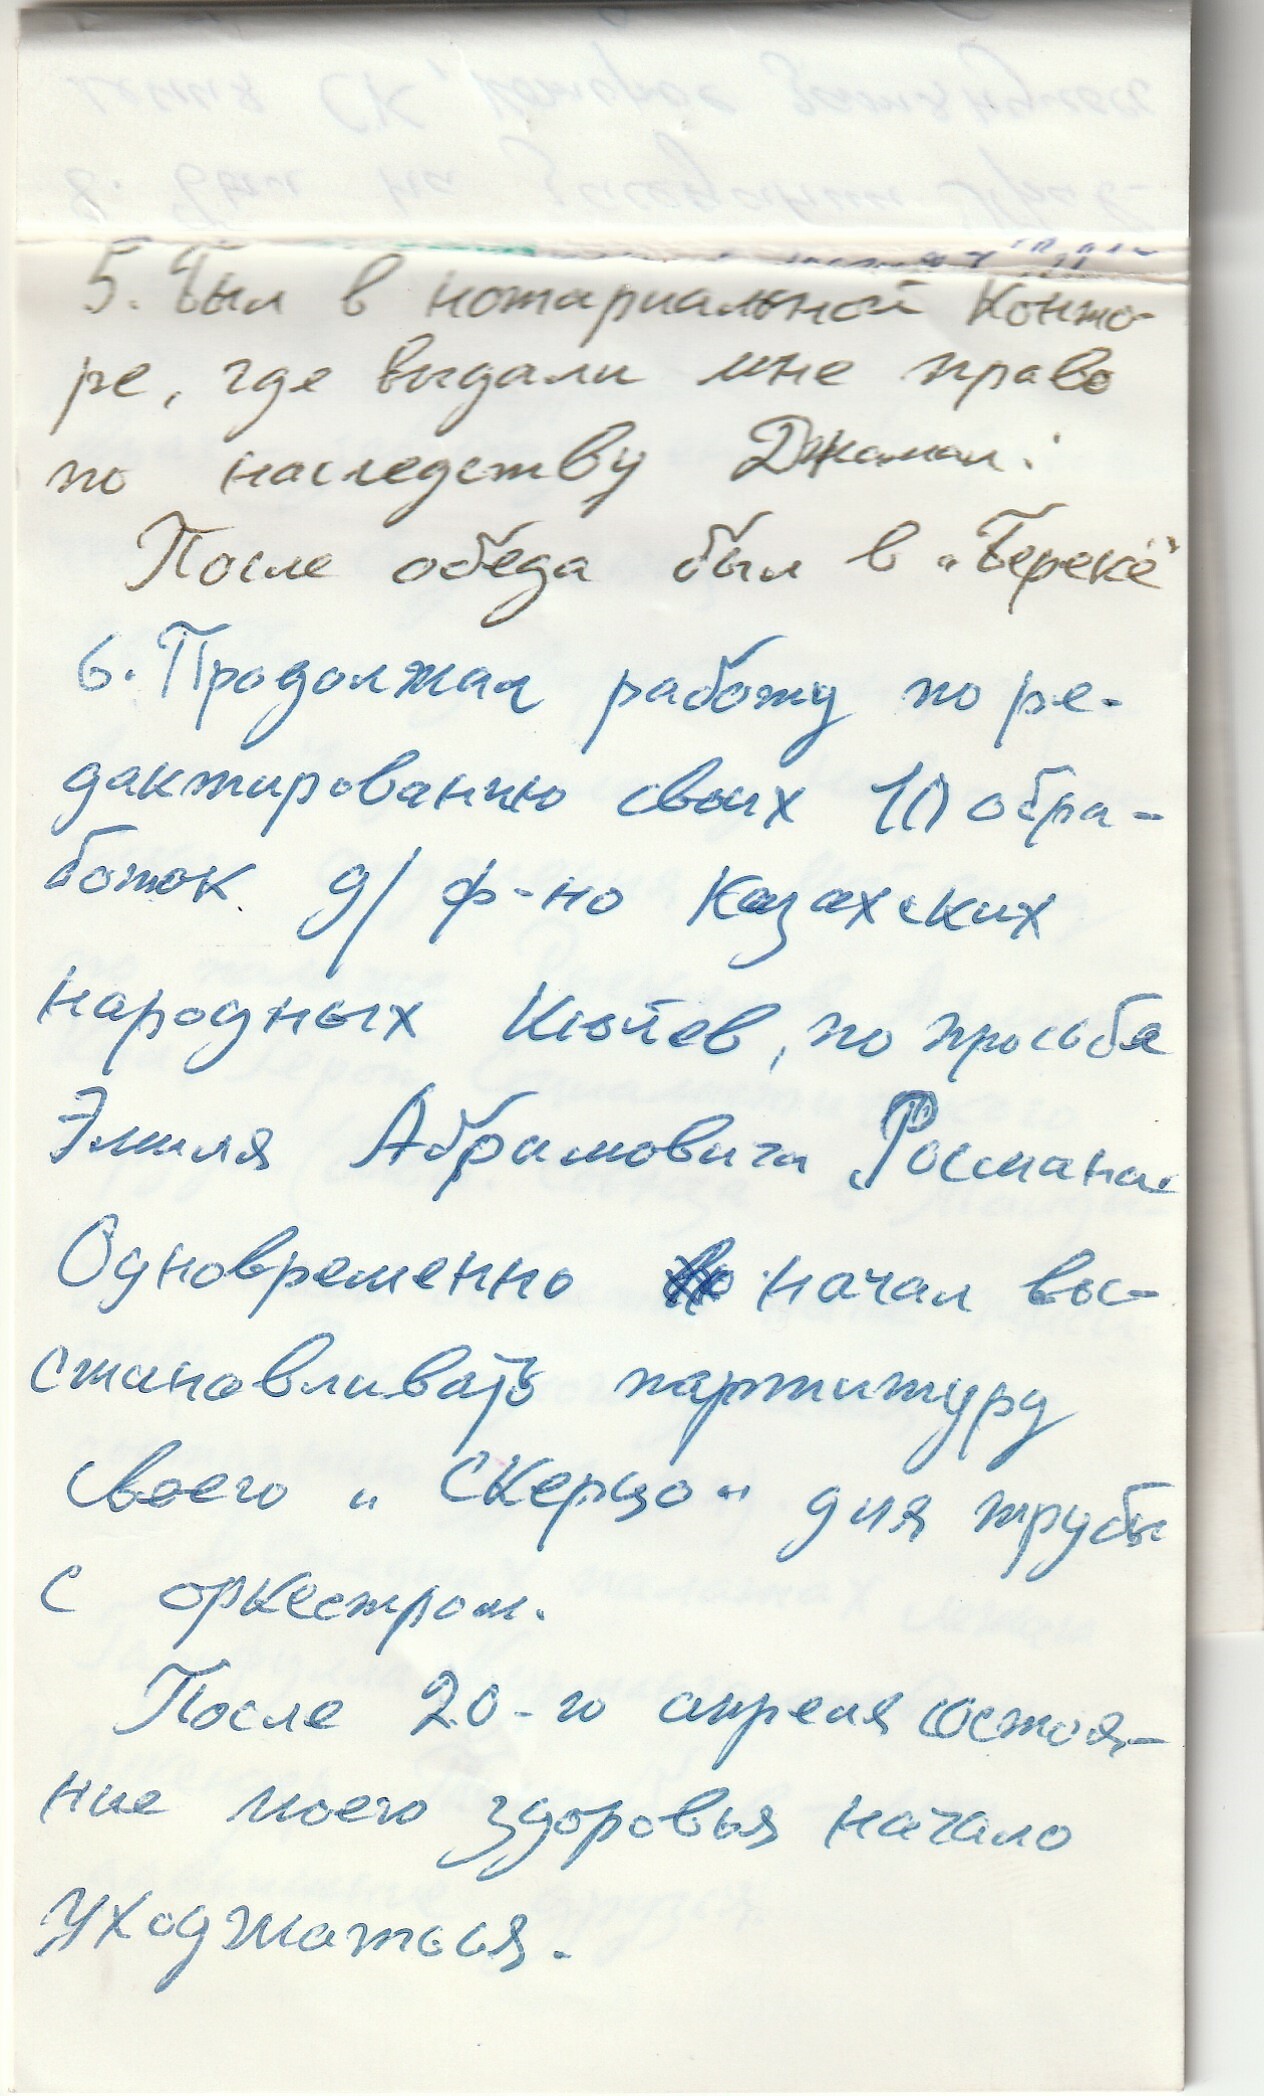 5. Был в нотариальной Конто-
ре, где выдали мне право
по наследству Джамал.
После обеда был в „Береке"
6. Продолжал работу по ре-
дактированию своих 10 обра-
боток д/ ф-но Казахских
народных Кюйев, по просьбе
Эмиля Абрамовича Росмана.
Одновременно начал вос-
станавливать партитуру
своего „Скерцо" для трубы
с оркестром.
После 20-го апреля состоя-
ние моего здоровья начало
уходжаться.